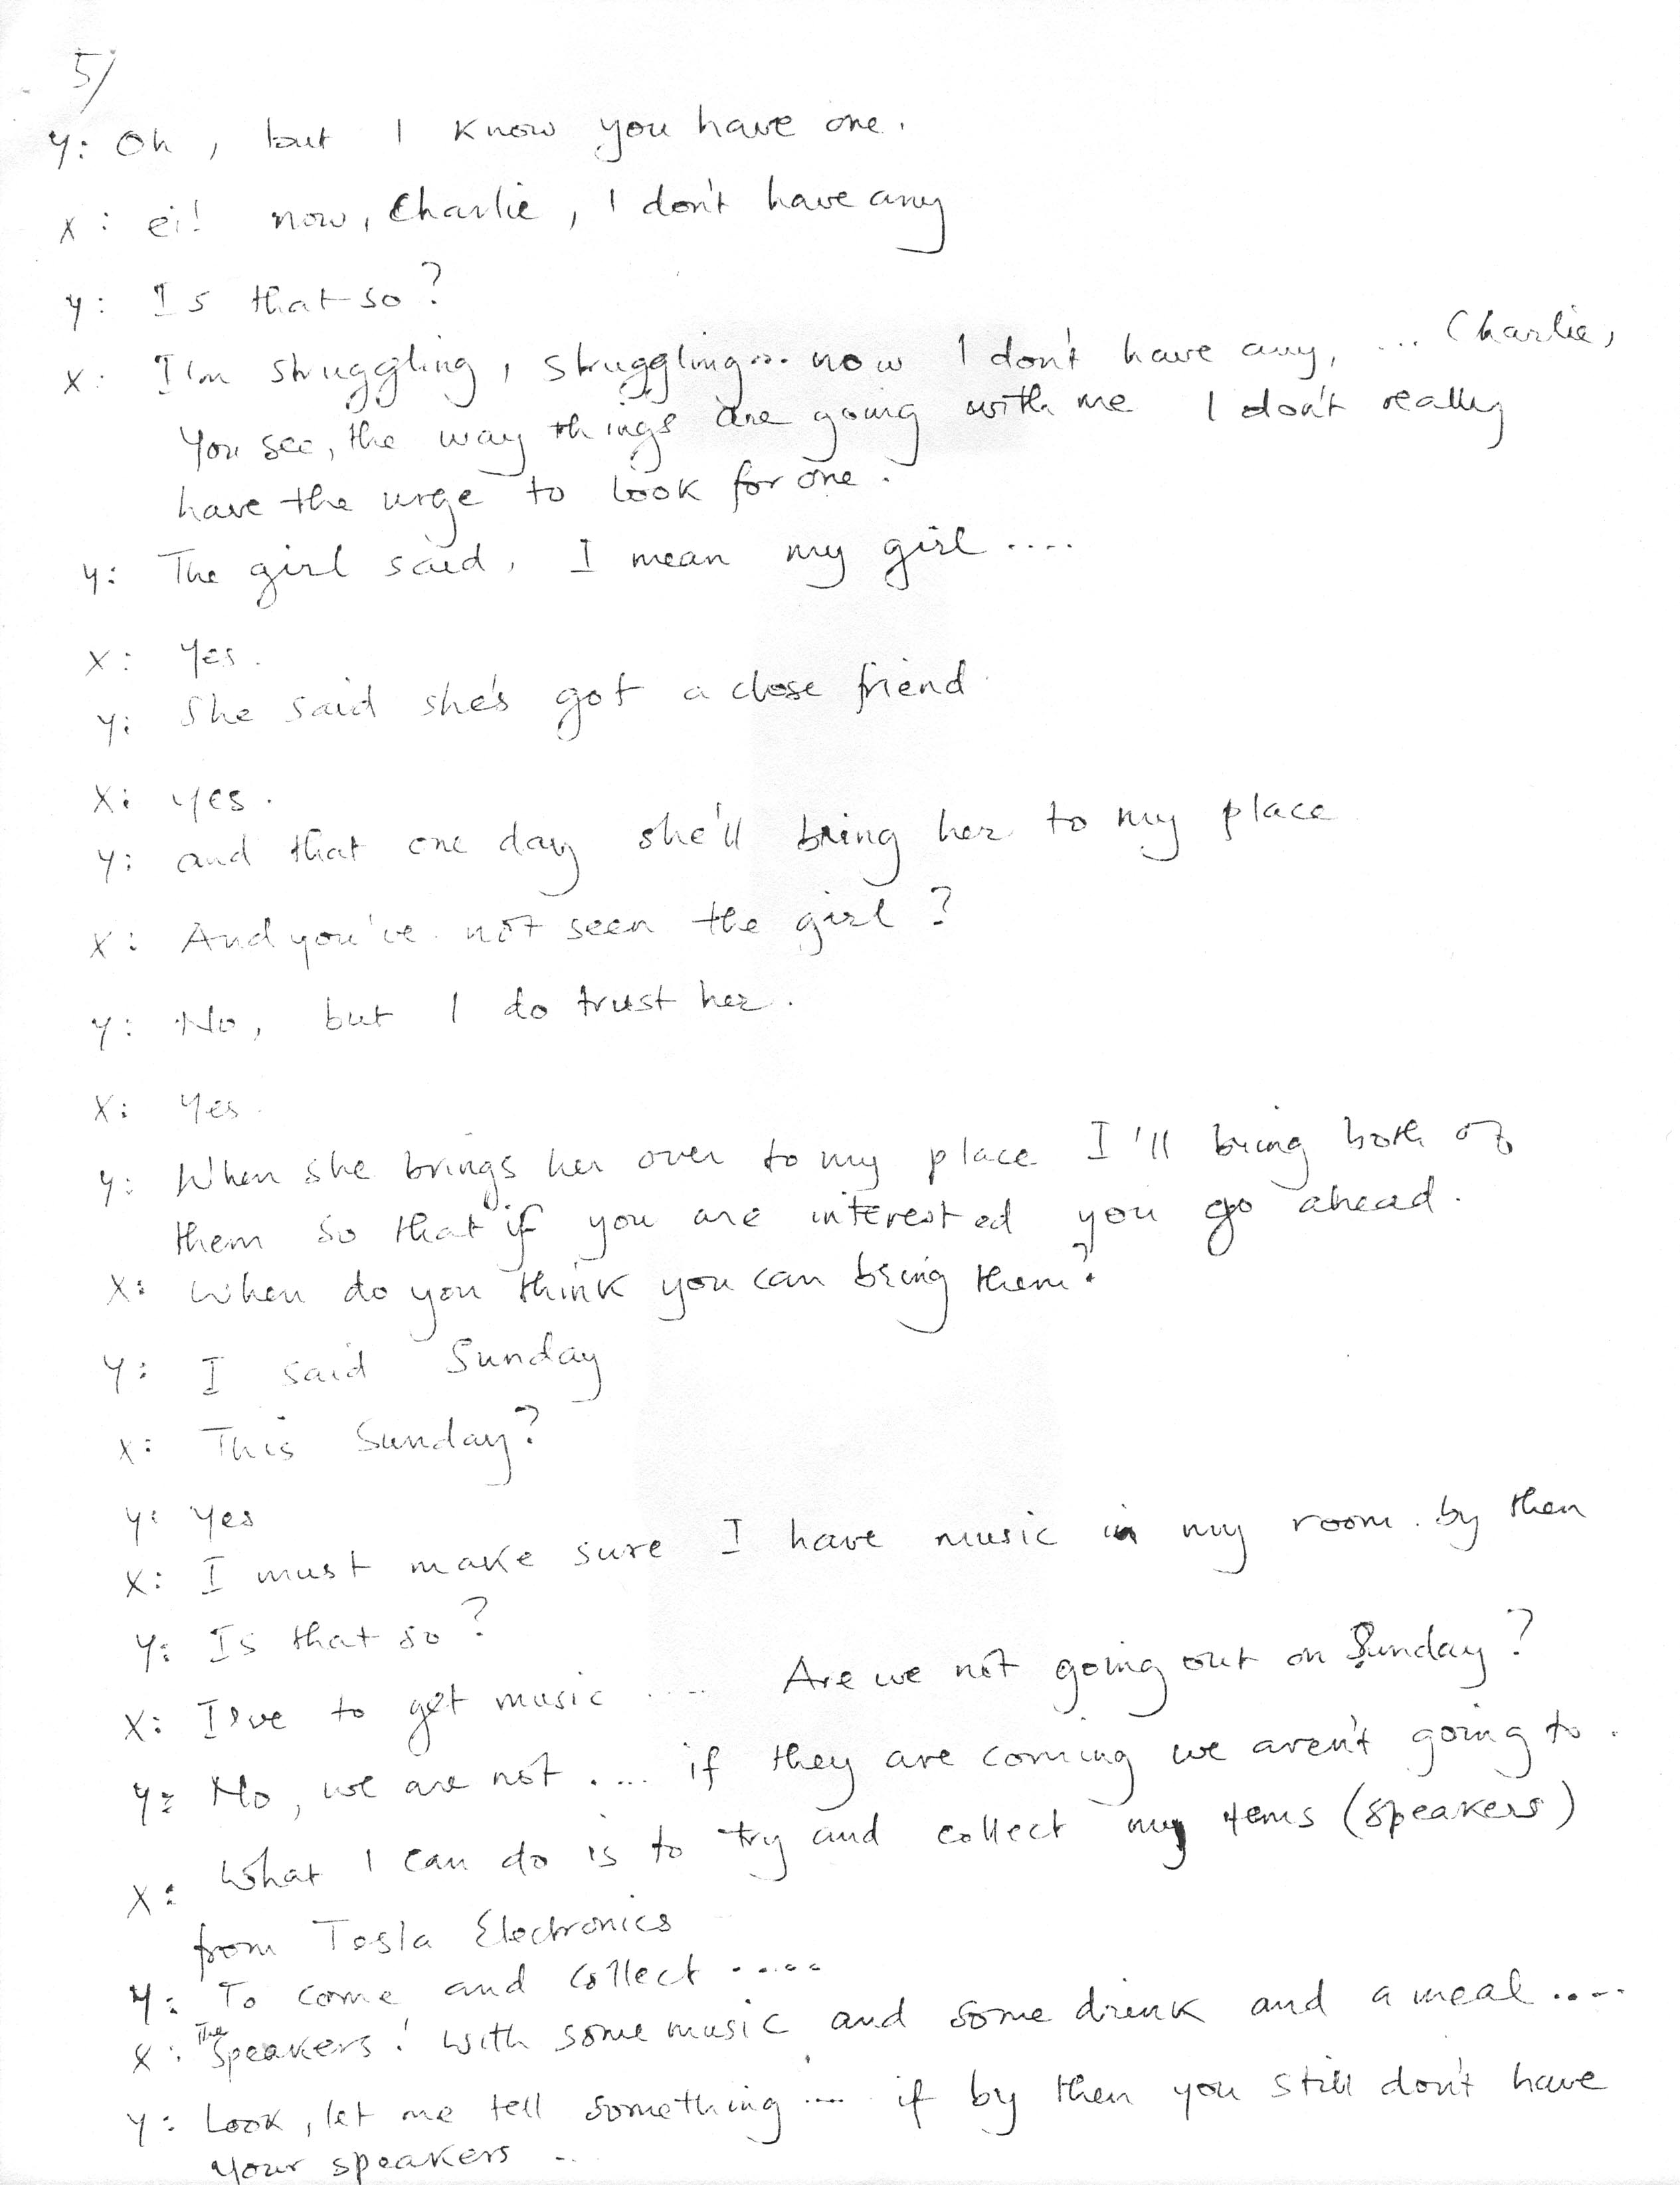 5/
Y: Oh, but I know you have one.
X: ei! now, Charlie, I don't have any
Y: Is that so?
X: I'm struggling, struggling... now I don't have any, ... Charlie,
You see, the way things are going with me I don't really
have the urge to look for one.
Y: The girl said, I mean my girl ....
X: Yes.
Y: She said she's got a close friend
X: yes.
Y: and that one day she'll bring her to my place
X: And you've not seen the girl?
Y: No, but I do trust her.
X: Yes.
Y: When she brings her over to my place I'll bring both of
them so that if you are interested you go ahead.
X: When do you think you can bring them?
Y: I said Sunday
X: This Sunday?
Y: Yes
X: I must make sure I have music in my room by then
Y: Is that so?
X: I've to get music .... Are we not going out on Sunday?
Y: No, we are not .... if they are coming we aren't going to.
X: What I can do is to try and collect my items (speakers)
from Tesla Electronics
Y: To come and collect .....
X: The speakers! with some music and some drink and a meal ....
Y: Look, let me tell something .... if by then you still don't have
your speakers ..